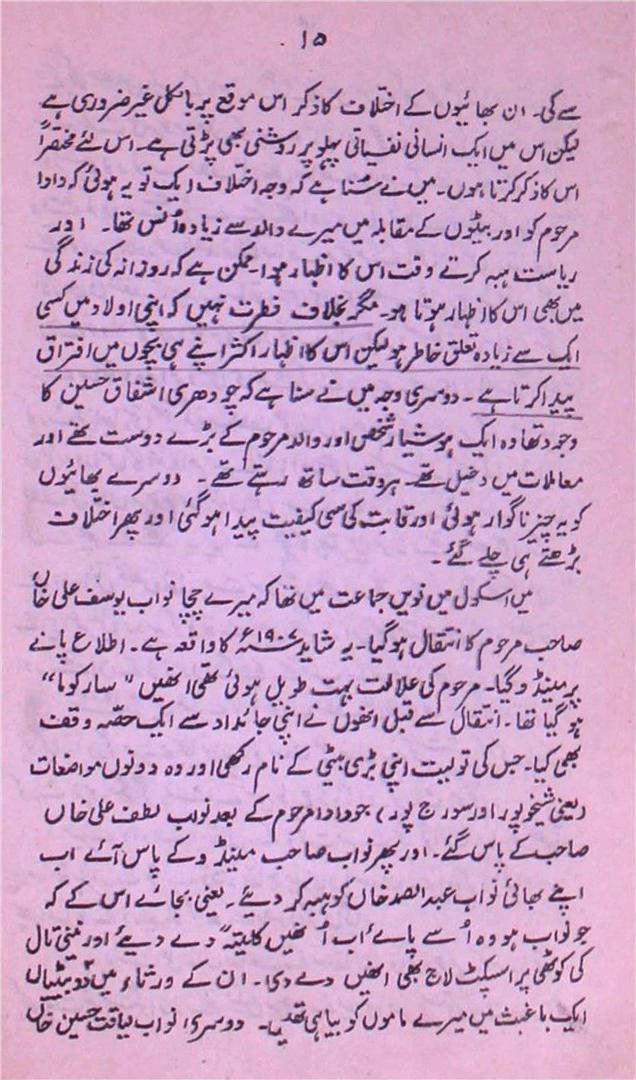 ۱۵
سے کی۔ ان بھائیوں کے اختلاف کا ذکر اس موقع پر بالکل غیر ضروری ہے
لیکن اس میں ایک انسانی نفسیاتی پہلو پر روشنی بھی پڑتی ہے۔ اس لئے مختصراً
اس کا ذکر کرتا ہوں۔ میں نے سُنا ہے کہ وجہ اختلاف ایک تو یہ ہوئی کہ دادا
مرحوم کو اور بیٹوں کے مقابلہ میں میرے والد سے زیادہ اُنس تھا۔ اور
ریاست ہبہ کرتے وقت اس کا اظہار ہوا۔ ممکن ہے کہ روزانہ کی زندگی
میں بھی اس کا اظہار ہوتا ہو۔ مگر بخلاف فطرت نہیں کہ اپنی اولاد میں کسی
ایک سے زیادہ تعلق خاطر ہو لیکن اس کا اظہار اکثر اپنے ہی بچوں میں افتراق
پیدا کرتا ہے۔ دوسری وجہ میں نے سنا ہے کہ چودھری اشفاق حسین کا
وجود تھا وہ ایک ہوشیار شخص اور والد مرحوم کے بڑے دوست تھے اور
معاملات میں دخیل تھے۔ ہر وقت ساتھ رہتے تھے۔ دوسرے بھائیوں
کو یہ چیز ناگوار ہوئی اور رقابت کی سی کیفیت پیدا ہو گئی اور پھر اختلاف
بڑھتے ہی چلے گئے۔
میں اسکول میں نویں جماعت میں تھا کہ میرے چچا نواب یوسف علی خاں
صاحب مرحوم کا انتقال ہو گیا۔ یہ شاید ۱۹۰۷ء کا واقعہ ہے۔ اطلاع پانے
پر مینڈو گیا۔ مرحوم کی علالت بہت طویل ہوئی تھی انھیں "سارکوما"
ہو گیا تھا۔ انتقال سے قبل انھوں نے اپنی جائداد سے ایک حصّہ وقف
بھی کیا۔ جس کی تولیت اپنی بڑی بیٹی کے نام رکھی اور وہ دونوں مواضعات
(یعنی شیخوپور اور سورج پور) جو دادا مرحوم کے بعد نواب لطف علی خاں
صاحب کے پاس گئے۔ اور پھر نواب صاحب مینڈو کے پاس آئے اب
اپنے بھائی نواب عبدالصمد خاں کو ہبہ کر دئیے۔ یعنی بجائے اس کے کہ
جو نواب ہو وہ اُسے پائے اب اُنھیں کلیتہً دے دیے اور نینی تال
کی کوٹھی پراسپکٹ لاج بھی انھیں دے دی۔ ان کے ورثاء میں ۲ دو بیٹیاں
ایک باغپت میں میرے ماموں کو بیاہی تھیں۔ دوسری نواب لیاقت حسین خاں